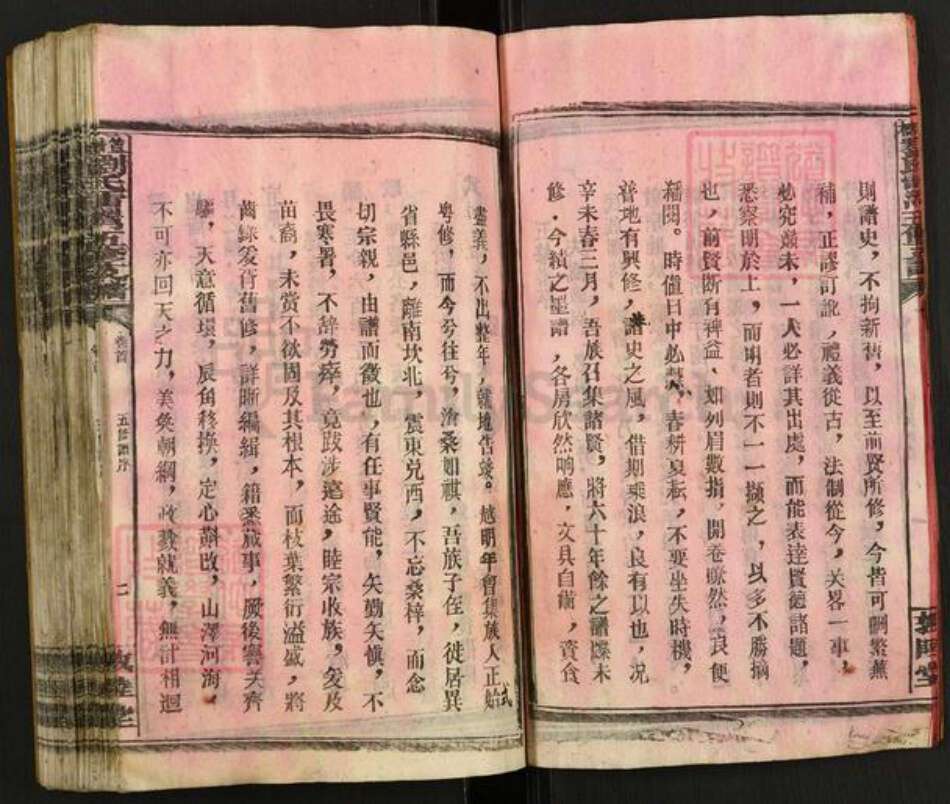 則譜史，不拘新舊，以至前賢所修，今皆可刪繁蕪
補，正謬訂訛，禮義從古，法制從今，关畧一事，
必究巔末，一人必詳其出處，而能表達賢德諸題，
悉察朗於上，而明者則不一一擷之，以多不勝摘
也，前賢断有裨益、如列眉數指，開卷瞭然，良便
繙閱。時值日中必彗，春耕夏耘，不要坐失时機，
普地有興修，譜史之風，借期乘浪，良有以也，况
辛未春三月，吾族召集諸賢，將六十年餘之譜牒未
修，今續之墨譜，各房欣然响應，文具自備，資食
盡義，不出整年，就墳告竣。越明年會集族人正始式
粤修，而今兮往兮，滄桑如祺，吾族子侄，徙居異
省縣邑，離南坎北，震東兑西，不忘桑梓，而念
切宗親，由譜而徵也，有任事賢能，矢勤矢慎，不
畏寒暑，不辞勞瘁，竟跋涉遙途，睦宗收族，爰及
苗裔，未赏不欲固及其根本，而枝葉繁衍溢盛，將
舊修，詳晰編緝，籍悉蒇事，厥後
，天意循環，辰角移换，定心斟酌，山澤河海，
不可亦回天之力，美奂朝綱，收族就義，無計相迴
劉氏 五修族譜
卷首
五修譜序
二
敦睦堂